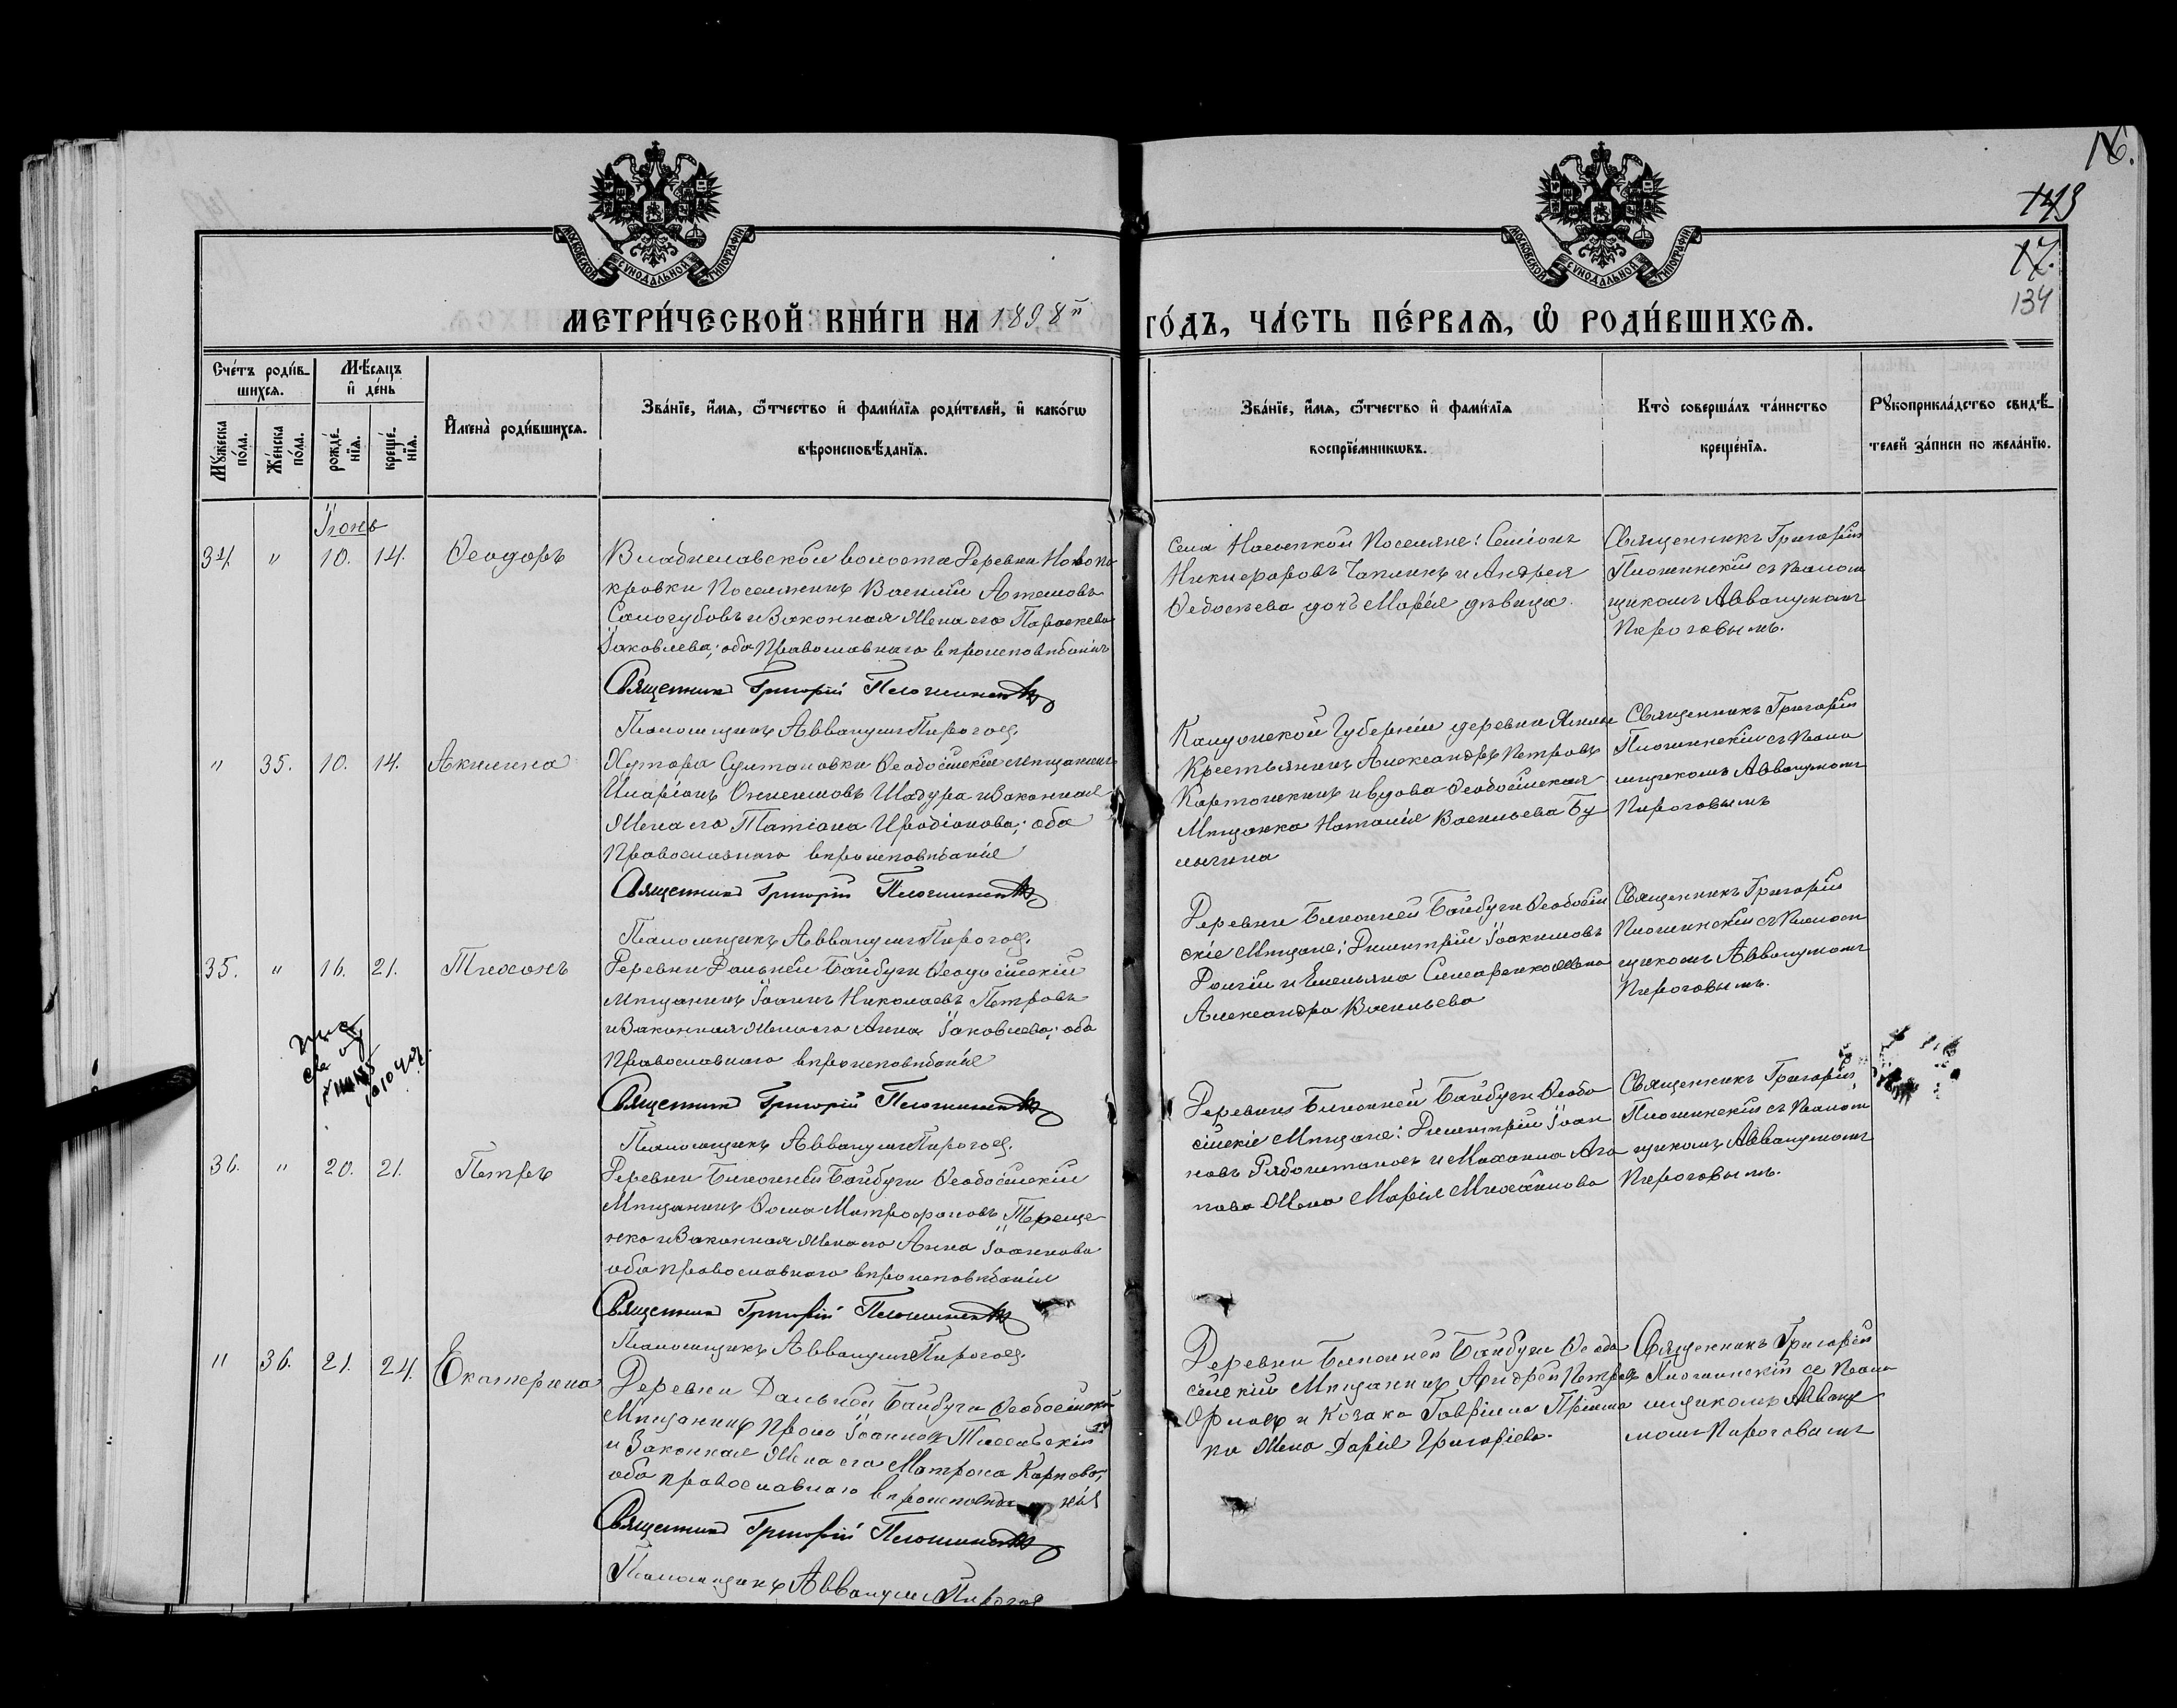 16.
143
17.
134
МОСКОВСКОЙ СѴНОДАЛЬНОЙ ТИПОГРАФІИ
МОСКОВСКОЙ СѴНОДАЛЬНОЙ ТИПОГРАФІИ
МЕТРИ́ЧЕСКОЙ КНИ́ГИ НА 1898й ГО́ДЪ, ЧА́СТЬ ПЕ́РВАѦ, Ѽ РОДИ́ВШИХСѦ.
Сче́тъ роди́в-
шихсѧ.
Мꙋ́жеска по́ла.
Же́нска по́ла.
Мѣ́сѧцъ
и҆ де́нь
рожде́-нїѧ.
креще́-нїѧ.
И҆мена̀ роди́вшихсѧ.
Зва́нїе, и҆́мѧ, ѻ҆́тчество и҆ фами́лїѧ роди́телей, и҆ како́гѡ
вѣроисповѣ́данїѧ.
Зва́нїе, и҆́мѧ, ѻ҆́тчество и҆ фами́лїѧ
воспрїе́мникѡвъ.
Кто̀ соверша́лъ та́инство
креще́нїѧ.
Рꙋкоприкла́дство свидѣ́-
телей за́писи по жела́нїю.
Іюнь
34. " 10. 14. Ѳеодоръ
Владиславской волости Деревни Новопо
кровки Поселянинъ Василій Артемовъ
Самогубовъ и Законная Жена его Параскева
Іаковлева; оба Православнаго вѣроисповѣданія
Священникъ Григорій
Псаломщикъ Аввакумъ Пироговъ.
Села Насыпкой Поселяне: Семіонъ
Никифоровъ Чаплинъ и Андрея
Ѳедосѣева дочь Марія дѣвица.
Священникъ Григорій
съ Псаломщ
щикомъ Аввакумомъ
Пироговымъ.
" 35. 10. 14. Акилина
Хутора Султановки Ѳеодосійскій мѣщанинъ
Иларіонъ Онисимовъ Шадура и Законная
Жена его Татіана Иродіонова; оба
Православнаго вѣроисповѣданія
Священникъ Григорій
Псаломщикъ Аввакумъ Пироговъ.
Калужской Губерніи деревни
Крестьянинъ Александръ Петровъ
Картошкинъ и вдова Ѳеодосійская
Мѣщанка Наталія Васильева Бу
лыгина
Священникъ Григорій
съ Псало
мщикомъ Аввакумомъ
Пироговымъ
35. " 16. 21. Тихонъ
Деревни Дальней Байбуги Ѳеодосійскій
Мѣщанинъ Іоаннъ Николаевъ Петровъ
и Законная Жена его Анна Іаковлева; оба
Православнаго вѣроисповѣданія
Священникъ Григорій
Псаломщикъ Аввакумъ Пироговъ.
Деревни Ближней Байбуги Ѳеодосій
скіе Мѣщане: Димитрій Іоакимовъ
и Емельяна Слюсаренко Жена
Александра Васильева
Священникъ Григорій
съ Псаломщ
щикомъ Аввакумомъ
Пироговымъ.
36. " 20. 21. Петръ
Деревни Ближней Байбуги Ѳеодосійскій
Мѣщанинъ Ѳома Митрофановъ Тереще
нко и Законная Жена его Анна Іоаннова
оба православнаго вѣроисповѣданія
Священникъ Григорій
Псаломщикъ Аввакумъ Пироговъ.
Деревни Ближней Байбуги Ѳеодо
сійскіе Мѣщане: Димитрій Іоан
новъ Рябоштановъ и Михаила Ага
пова Жена Марія Михайлова
Священникъ Григорій
съ Псаломщ
щикомъ Аввакумомъ
Пироговымъ.
" 36. 21. 24. Екатерина
Деревни Дальней Байбуги Ѳеодосійскій
Мѣщанинъ Іоанновъ
и Законная Жена его Матрона Карпова;
оба православнаго вѣроисповѣданія
Священникъ Григорій
Псаломщикъ Аввакумъ Пироговъ
Деревни Ближней Байбуги Ѳеодо
сійскій Мѣщанинъ Андрей Петровъ
Орловъ и Козака Гавріила
Жена Дарія Григоріева.
Священникъ Григорій
съ Псало
мщикомъ Авваку
момъ Пироговымъ